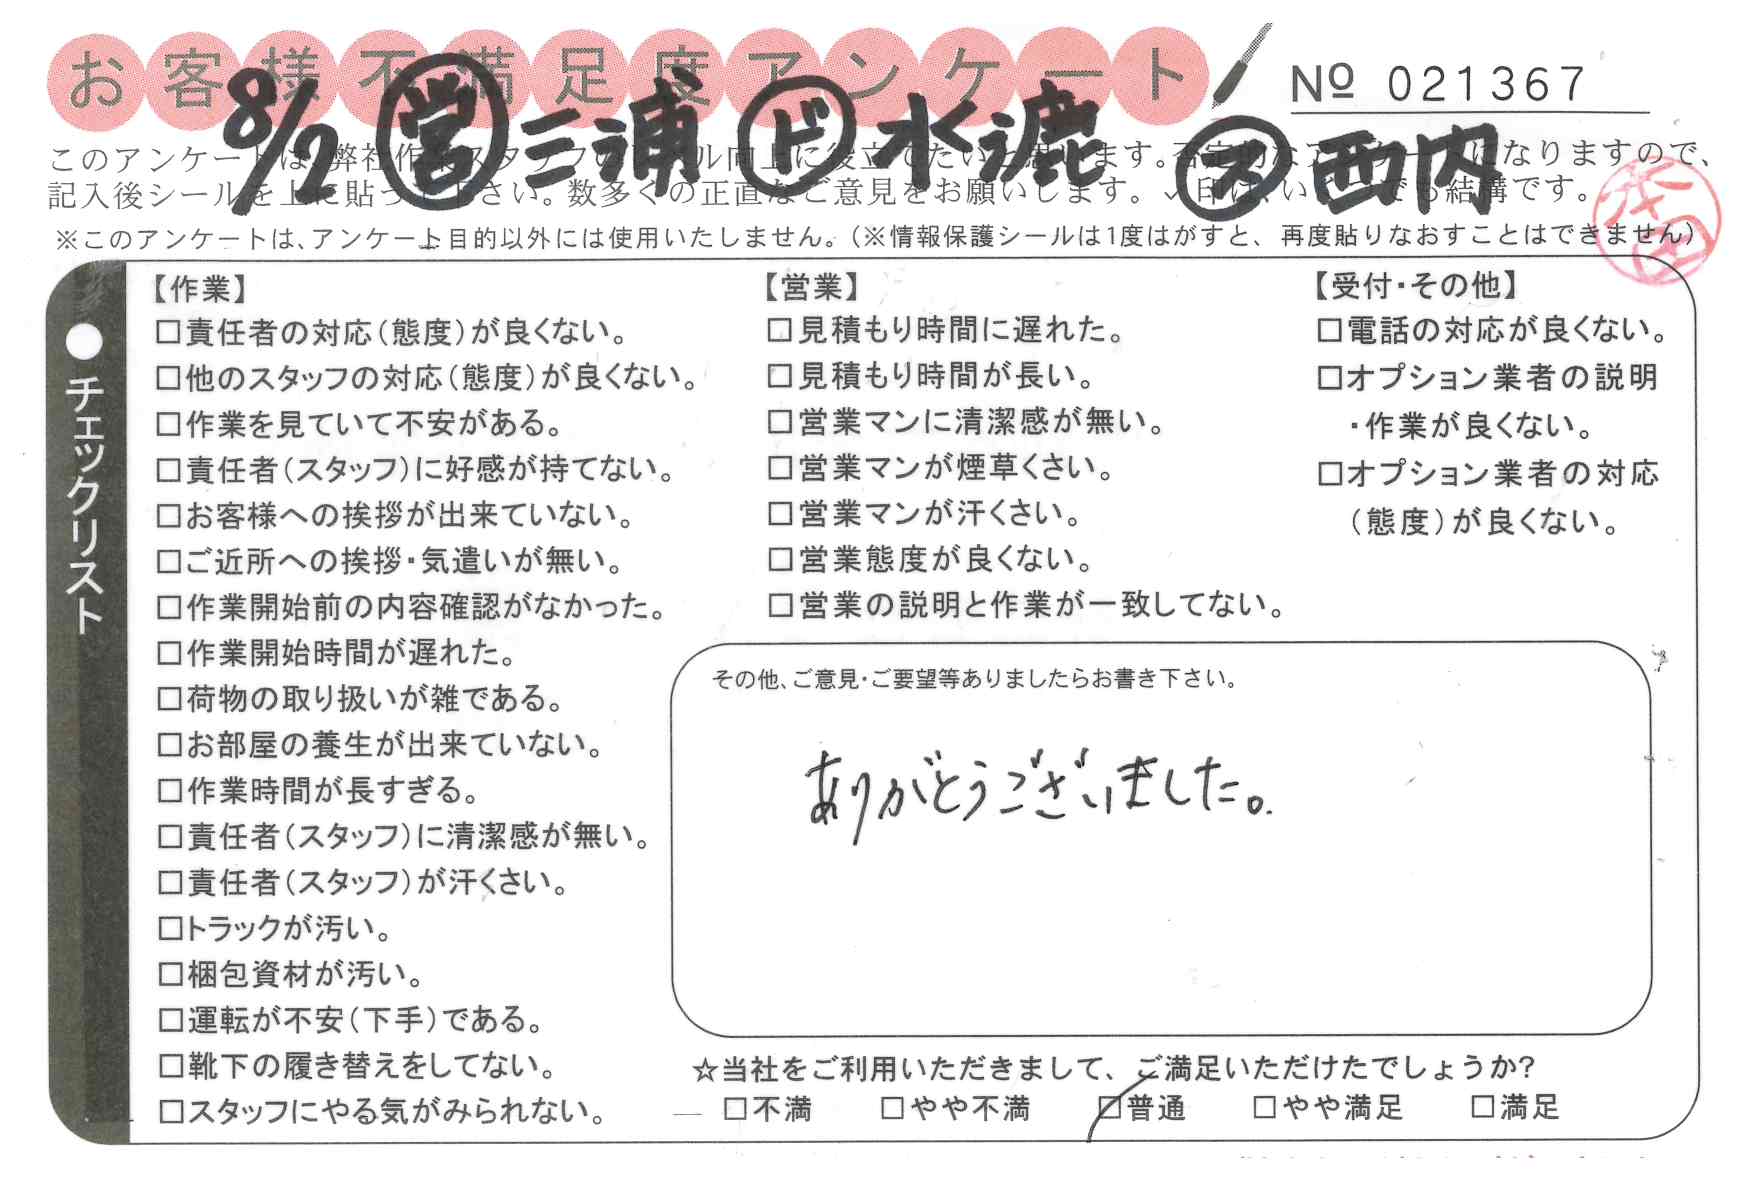 お客様不満足度アンケート
№ 021367
8/2 ㊂営 三浦 ド 水漉 ス 西内
このアンケートは、弊社作業スタッフの
ル向上に役立てたいと思います。否定的なアンケートになりますので、
記入後シールを上に貼って下さい。数多くの正直なご意見をお願いします。✓印は、いくつでも結構です。
※このアンケートは、アンケート目的以外には使用いたしません。（※情報保護シールは1度はがすと、再度貼りなおすことはできません）
●チェックリスト
【作業】
□責任者の対応（態度）が良くない。
□他のスタッフの対応（態度）が良くない。
□作業を見ていて不安がある。
□責任者（スタッフ）に好感が持てない。
□お客様への挨拶が出来ていない。
□ご近所への挨拶・気遣いが無い。
□作業開始前の内容確認がなかった。
□作業開始時間が遅れた。
□荷物の取り扱いが雑である。
□お部屋の養生が出来ていない。
□作業時間が長すぎる。
□責任者（スタッフ）に清潔感が無い。
□責任者（スタッフ）が汗くさい。
□トラックが汚い。
□梱包資材が汚い。
□運転が不安（下手）である。
□靴下の履き替えをしてない。
□スタッフにやる気がみられない。
【営業】
□見積もり時間に遅れた。
□見積もり時間が長い。
□営業マンに清潔感が無い。
□営業マンが煙草くさい。
□営業マンが汗くさい。
□営業態度が良くない。
□営業の説明と作業が一致してない。
【受付・その他】
□電話の対応が良くない。
□オプション業者の説明
・作業が良くない。
□オプション業者の対応
（態度）が良くない。
その他、ご意見・ご要望等ありましたらお書き下さい。
ありがとうございました。
☆当社をご利用いただきまして、ご満足いただけたでしょうか?
□不満 □やや不満 □普通 □やや満足 □満足